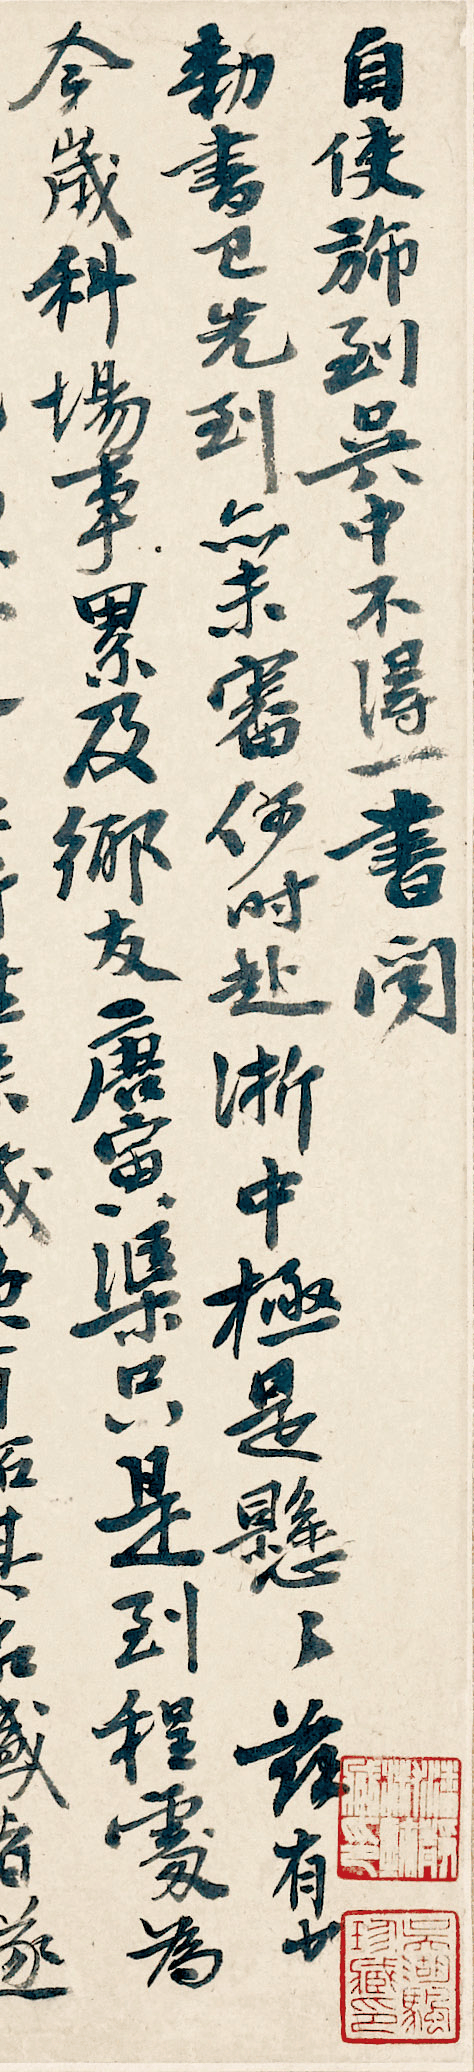 自使斾到吳中不得一書聞
勑書已先到亦未審何时赴浙中極是懸〻茲有少
今歲科場事累及鄉友唐寅渠只是到程處為
吳湖颿珍藏印